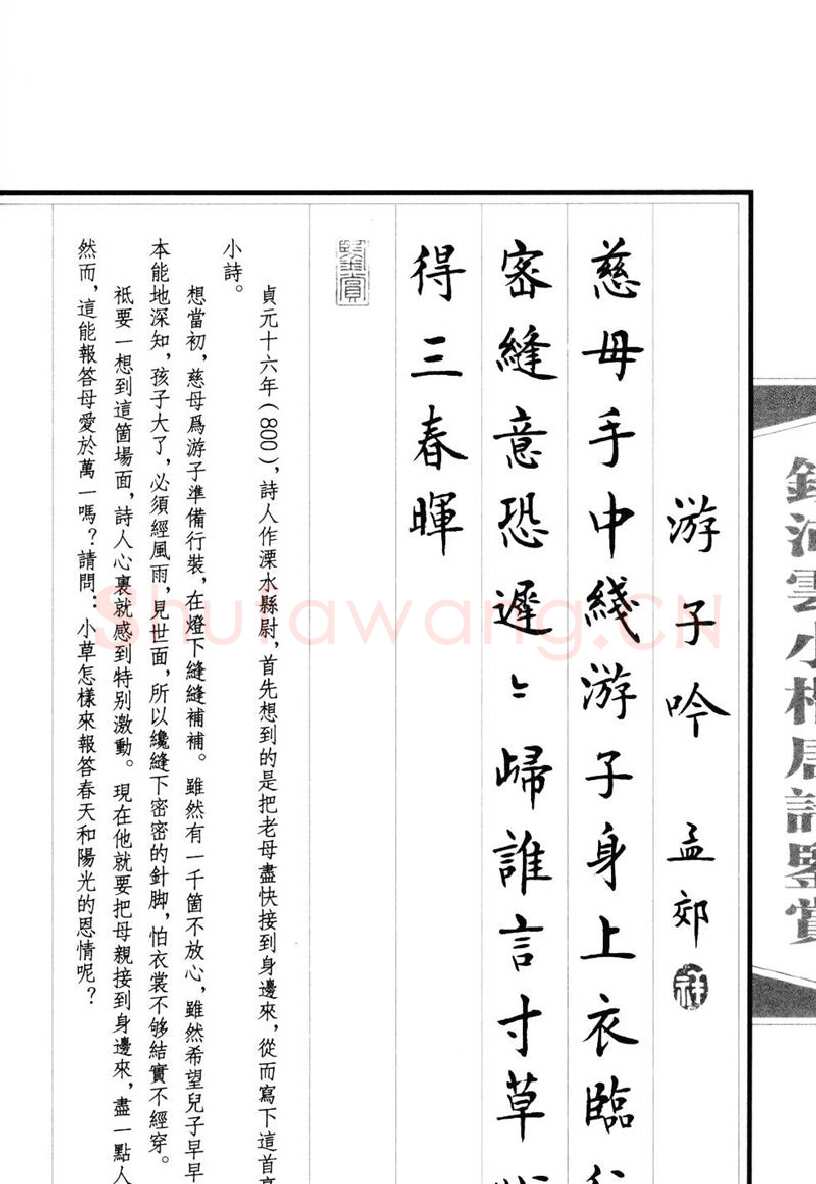 游子吟 孟郊
慈母手中綫游子身上衣臨
密縫意恐遲〻歸誰言寸草
得三春暉
鑒賞
貞元十六年(800)，詩人作溧水縣尉，首先想到的是把老母盡快接到身邊來，從而寫下這首
小詩。
想當初，慈母爲游子準備行裝，在燈下縫縫補補。雖然有一千箇不放心，雖然希望兒子早早
本能地深知，孩子大了，必須經風雨，見世面，所以纔縫下密密的針脚，怕衣裳不够結實不經穿。
祇要一想到這箇場面，詩人心裏就感到特别激動。現在他就要把母親接到身邊來，盡一點人
然而，這能報答母愛於萬一嗎？請問：小草怎樣來報答春天和陽光的恩情呢？
雲小楷唐詩鑒賞
Shufawang.CN